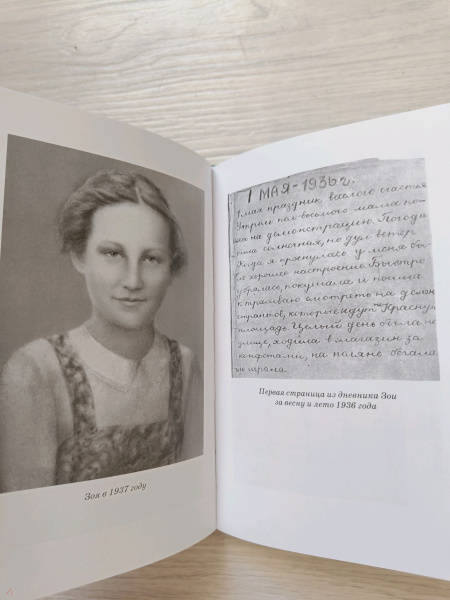 Зоя в 1937 году
1 МАЯ-1936г.
1 мая праздник веселого счастья
Утром пол-восьмого мама по-
шла на демонстрацию. Погода
была солнечная, но дул ветер
Когда я проснулась у меня бы-
ло хорошее настроение. Быстро
убралась, покушала и пошла
к трамваю смотреть на демон
странтов, которые идут на Красную
площадь. Целый день была на
улице, ходила в магазин за
конфетами, на поляне бегала
и играла
Первая страница из дневника Зои
за весну и лето 1936 года